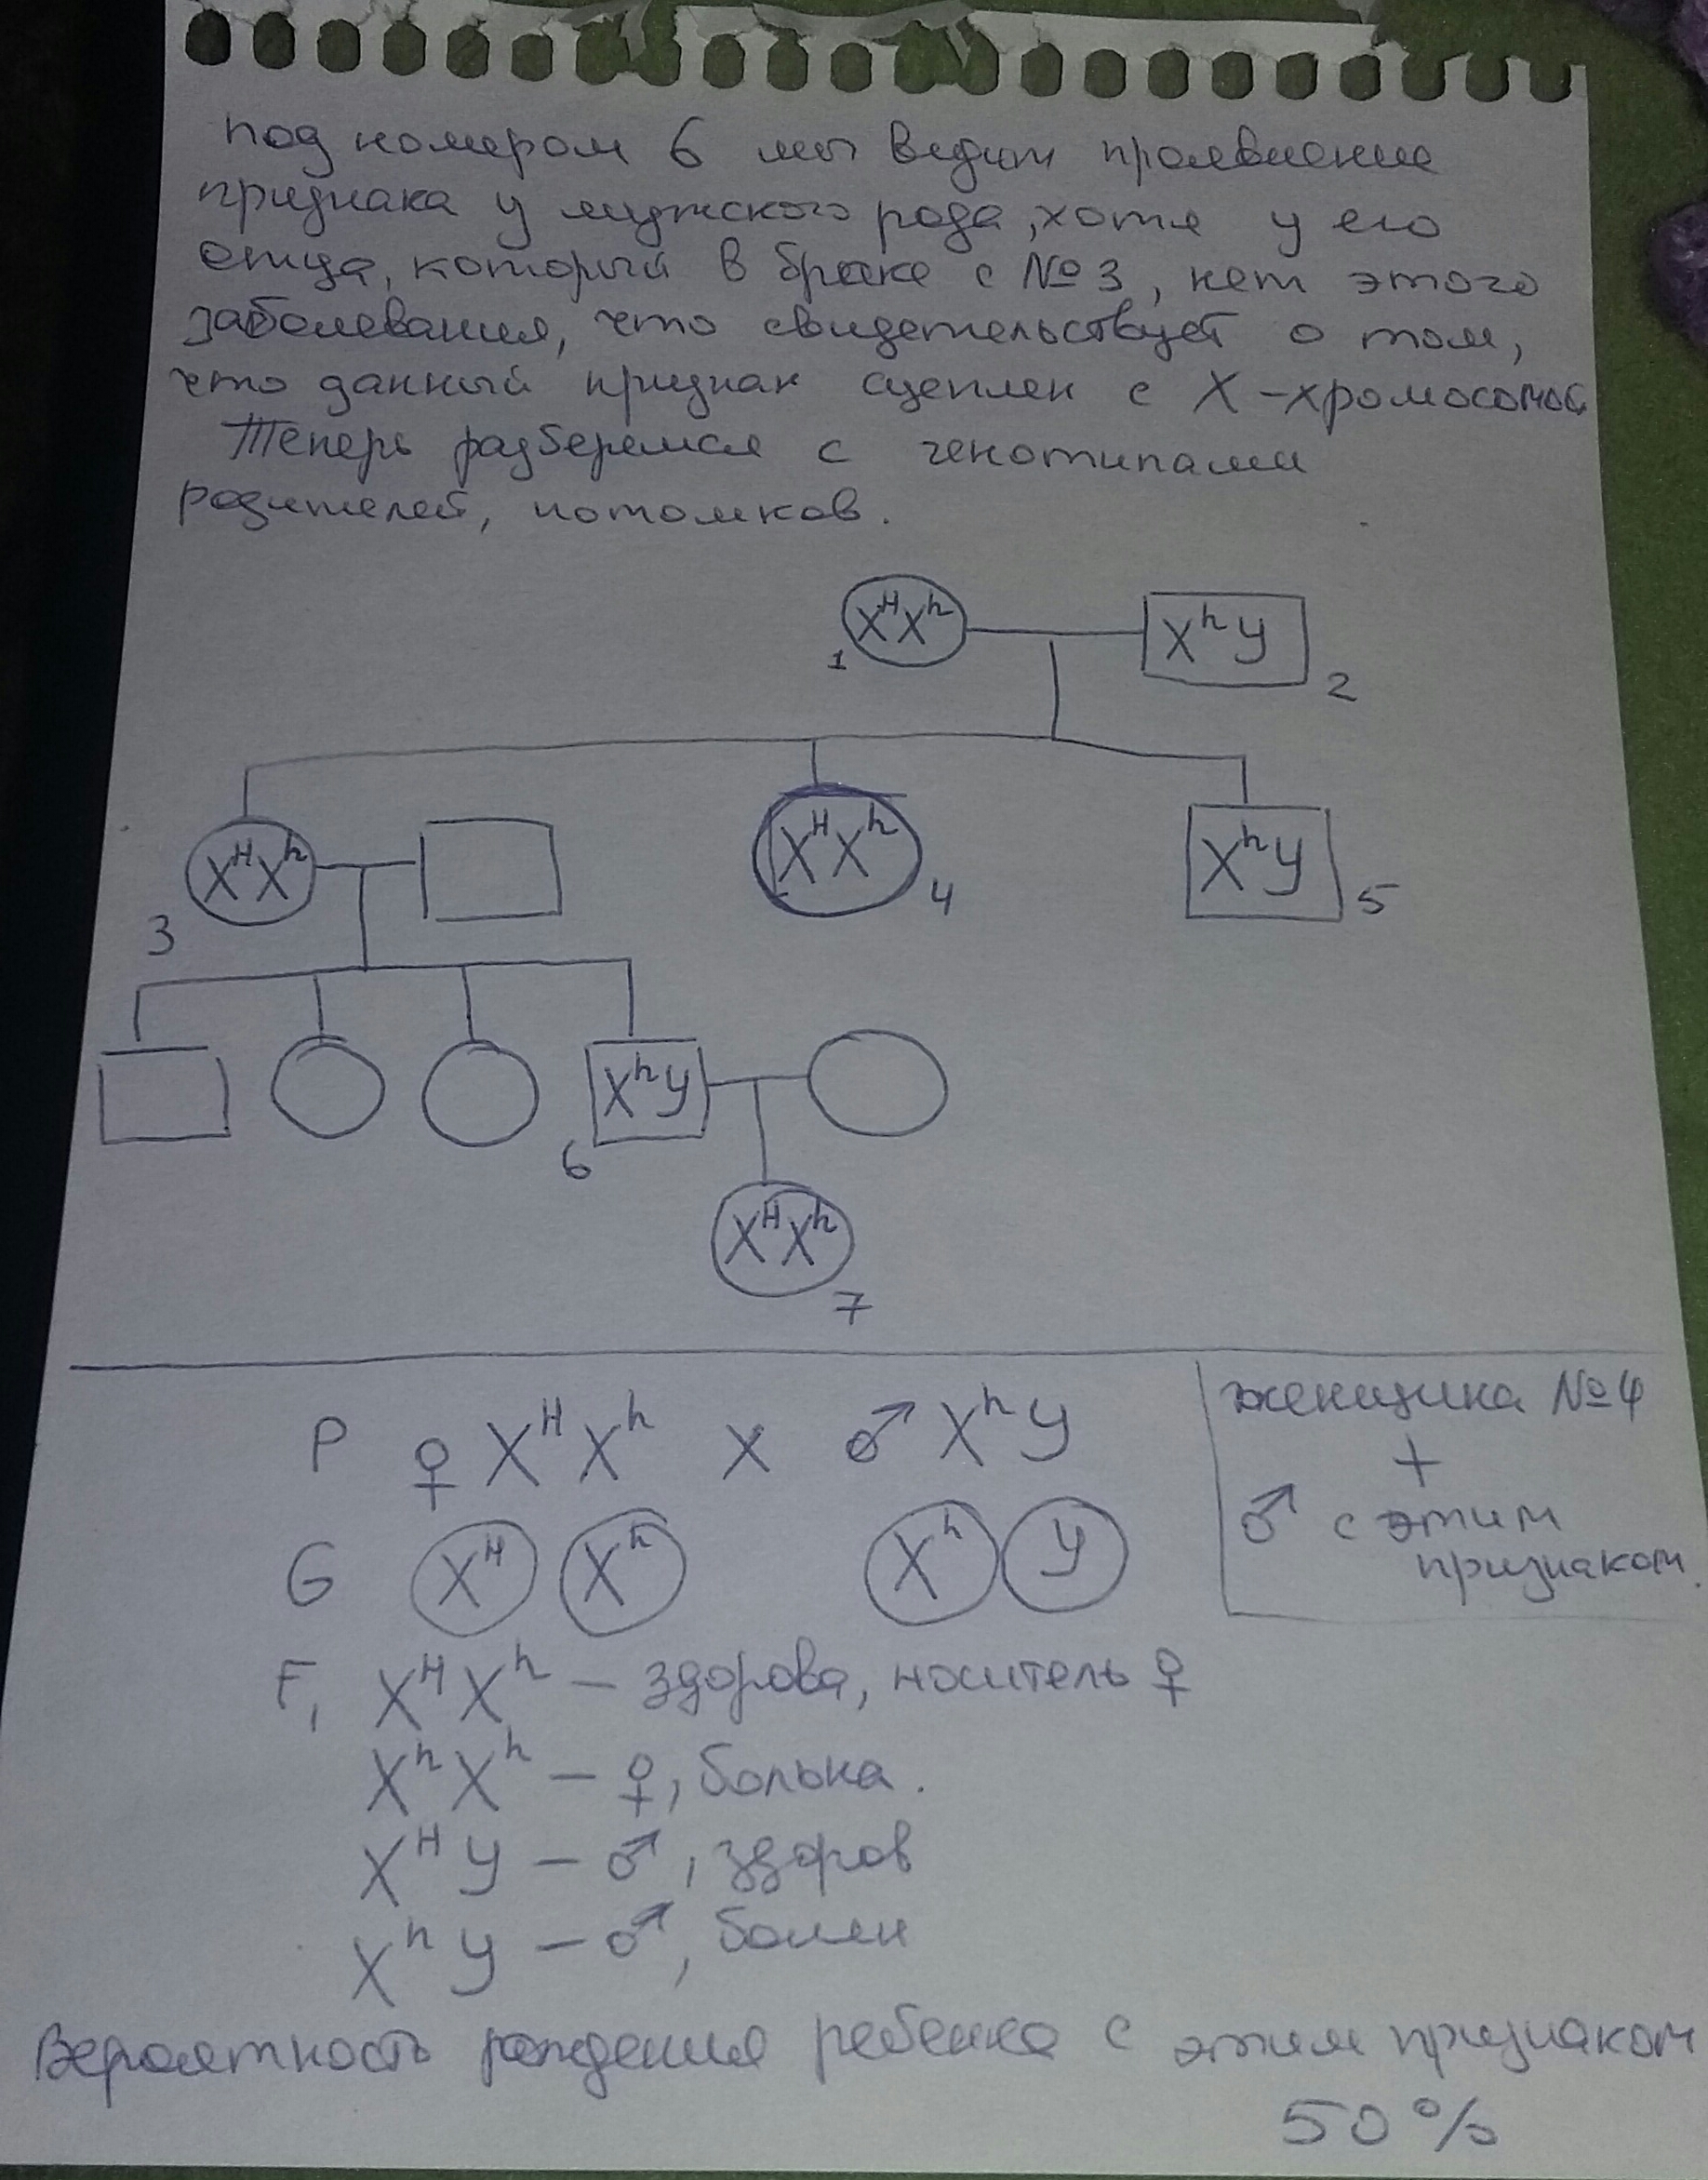 под номером 6 мы видим проявление
признака у мужского рода, хотя у его
отца, который в браке с №3, нет этого
заболевания, что свидетельствует о том,
что данный признак сцеплен с X-хромосомой
Теперь разберемся с генотипами
родителей, потомков.
XᴴXʰ XʰY
1 2
XᴴXʰ XᴴXʰ XʰY
3 4 5
XʰY
6
XᴴXʰ
7
P ♀ XᴴXʰ x ♂ XʰY
женщина №4
+
♂ с этим
признаком.
G Xᴴ Xʰ Xʰ Y
F₁ XᴴXʰ – здорова, носитель ♀
XʰXʰ – ♀, больна.
XᴴY – ♂, здоров
XʰY – ♂, болен
Вероятность рождения ребенка с этим признаком
50%